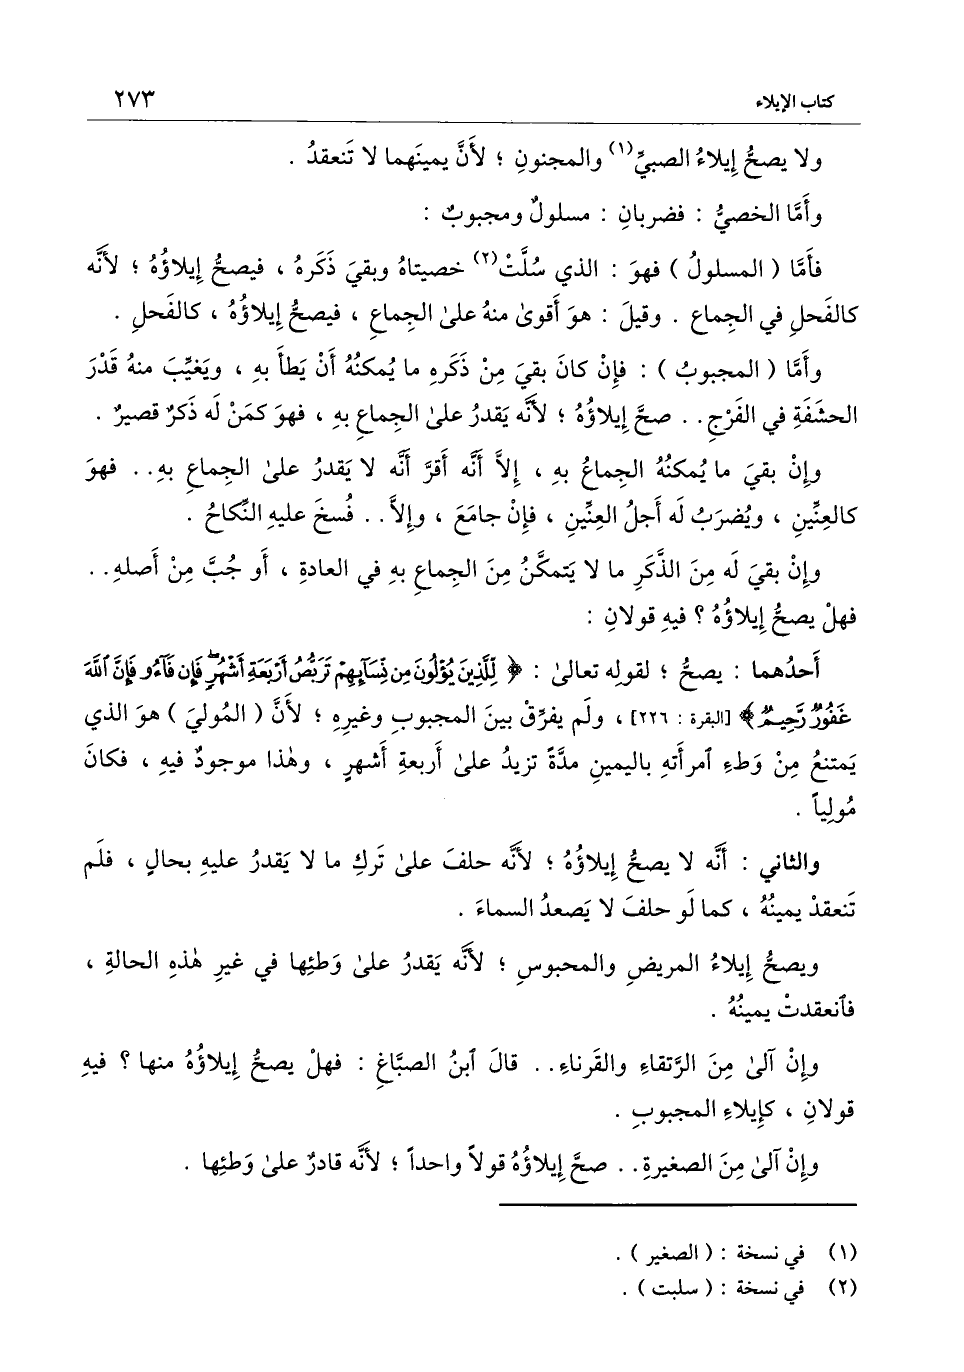 كتاب الإيلاء ٢٧٣
ولا يصحُّ إيلاءُ الصبيِّ(١) والمجنونِ ؛ لأَنَّ يمينَهما لا تَنعقدُ .
وأَمَّا الخصيُّ : فضربانِ : مسلولٌ ومجبوبٌ :
فأَمَّا ( المسلولُ ) فهوَ : الذي سُلَّتْ(٢) خصيتاهُ وبقيَ ذَكَرهُ ، فيصحُّ إِيلاؤُهُ ؛ لأَنَّه
كالفَحلِ في الجِماعِ . وقيلَ : هوَ أَقوىٰ منهُ علىٰ الجِماعِ ، فيصحُّ إِيلاؤُهُ ، كالفَحلِ .
وأَمَّا ( المجبوبُ ) : فإِنْ كانَ بقيَ مِنْ ذَكَرهِ ما يُمكنُهُ أَنْ يَطأَ بهِ ، ويَغيِّبَ منهُ قَدْرَ
الحشَفَةِ في الفَرْجِ . . صحَّ إِيلاؤُهُ ؛ لأَنَّه يَقدرُ علىٰ الجِماعِ بهِ ، فهوَ كمَنْ لَه ذَكرٌ قصيرٌ .
وإِنْ بقيَ ما يُمكنُهُ الجِماعُ بهِ ، إِلاَّ أَنَّه أَقرَّ أَنَّه لا يَقدرُ علىٰ الجِماعِ بهِ . . فهوَ
كالعِنِّينِ ، ويُضرَبُ لَه أَجلُ العِنِّينِ ، فإِنْ جامَعَ ، وإِلاَّ . . فُسخَ عليهِ النِّكاحُ .
وإِنْ بقيَ لَه مِنَ الذَّكَرِ ما لا يَتمكَّنُ مِنَ الجِماعِ بهِ في العادةِ ، أَو جُبَّ مِنْ أَصلهِ . .
فهلْ يصحُّ إِيلاؤُهُ ؟ فيهِ قولانِ :
أَحدُهما : يصحُّ ؛ لقولِه تعالىٰ : ﴿ لِّلَّذِينَ يُؤْلُونَ مِن نِّسَآئِهِمْ تَرَبُّصُ أَرْبَعَةِ أَشْهُرٍ ۖ فَإِن فَآءُو فَإِنَّ ٱللَّهَ
غَفُورٌ رَّحِيمٌ ﴾ [البقرة : ٢٢٦] ، ولَم يفرِّقْ بينَ المجبوبِ وغيرِهِ ؛ لأَنَّ ( المُوليَ ) هوَ الذي
يَمتنعُ مِنْ وَطءِ ٱمرأَتهِ باليمينِ مدَّةً تزيدُ علىٰ أَربعةِ أَشهرٍ ، وهٰذا موجودٌ فيهِ ، فكانَ
مُولِياً .
والثاني : أَنَّه لا يصحُّ إِيلاؤُهُ ؛ لأَنَّه حلفَ علىٰ تَركِ ما لا يَقدرُ عليهِ بحالٍ ، فلَم
تَنعقدْ يمينُهُ ، كما لَو حلفَ لا يَصعدُ السماءَ .
ويصحُّ إِيلاءُ المريضِ والمحبوسِ ؛ لأَنَّه يَقدرُ علىٰ وَطئِها في غيرِ هٰذهِ الحالةِ ،
فٱنعقدتْ يمينُهُ .
وإِنْ آلىٰ مِنَ الرَّتقاءِ والقَرناءِ . . قالَ ٱبنُ الصبَّاغِ : فهلْ يصحُّ إِيلاؤُهُ منها ؟ فيهِ
قولانِ ، كإِيلاءِ المجبوبِ .
وإِنْ آلىٰ مِنَ الصغيرةِ . . صحَّ إِيلاؤُهُ قولاً واحداً ؛ لأَنَّه قادرٌ علىٰ وَطئِها .
(١) في نسخة : ( الصغير ) .
(٢) في نسخة : ( سلبت ) .